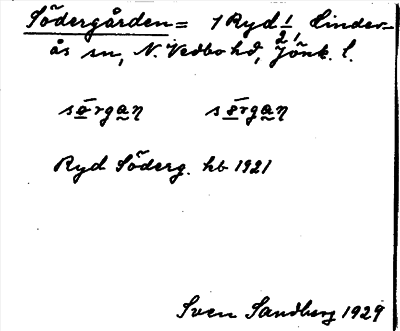 Södergården = 1 Ryd 1/2, Linder-
ås sn, N. Vedbo hd, Jönk. l.
sørgan sørgan
Ryd Söderg. hb 1921
Sven Sandberg 1929